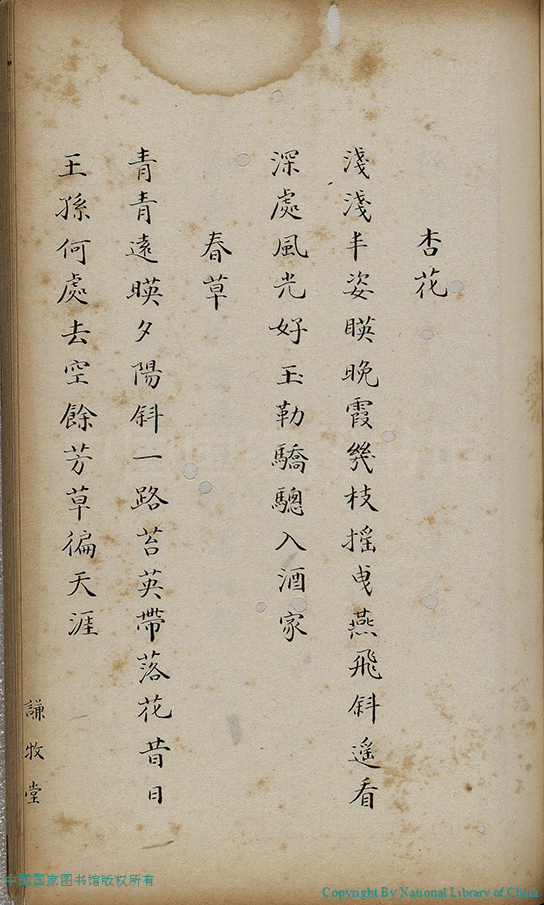 杏花
淺淺丰姿暎晚霞幾枝搖曳燕飛斜遥看
深處風光好玉勒驕驄入酒家
春草
青青遠暎夕陽斜一路苔英帶落花昔日
王孫何處去空餘芳草徧天涯
謙牧堂
中國国家图书馆版权所有
Copyright By National Library of China